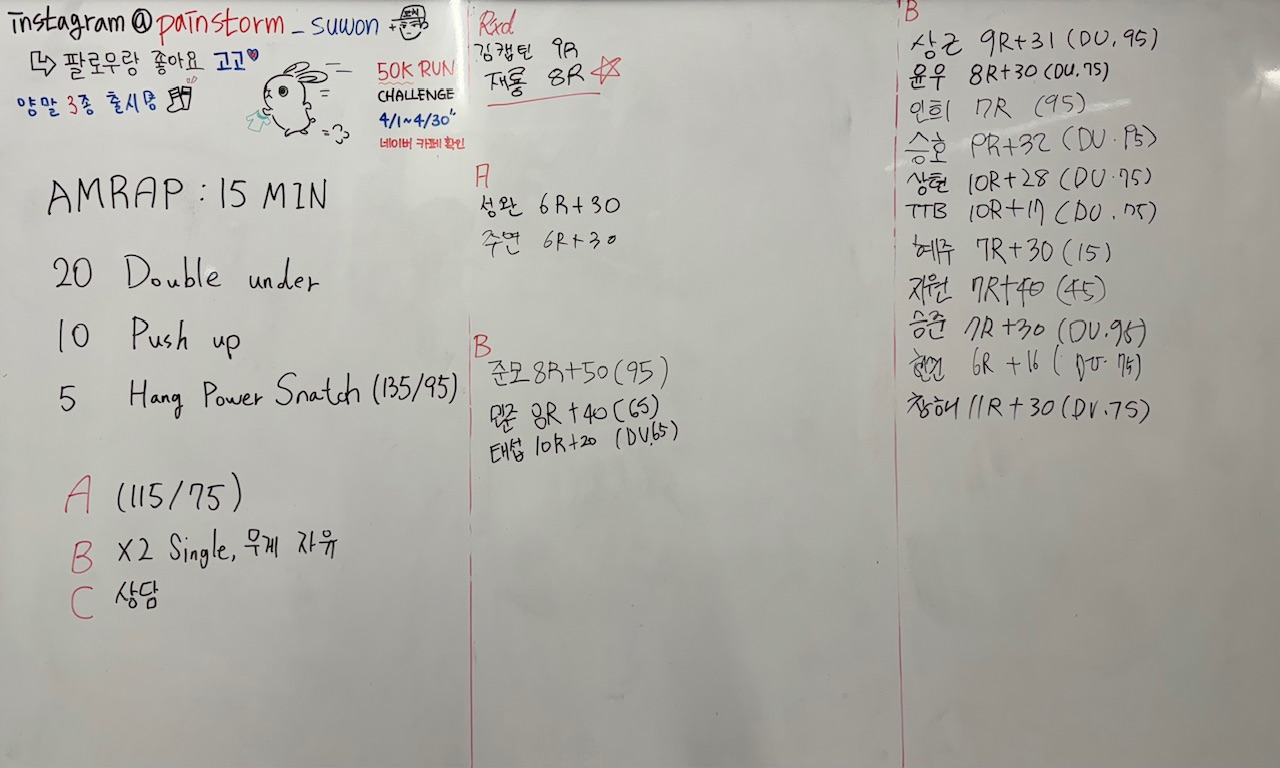 instagram@painstorm_suwon
팔로우랑 좋아요 고고
양말 3종 출시중
50K RUN
CHALLENGE
4/1~4/30"
네이버 카페 확인
AMRAP : 15 MIN
20 Double under
10 Push up
5 Hang Power Snatch (135/95)
A (115/75)
B X2 Single, 무게 자유
C 상담
Rxd
김캡틴 9R
재룡 8R
A
성완 6R+30
주연 6R+30
B
준모 8R+50 (95)
민준 8R+40 (65)
태섭 10R+20 (DU.65)
B
상근 9R+31 (DU, 95)
윤우 8R+30 (DU.75)
인희 7R (95)
승호 9R+32 (DU.95)
상현 10R+28 (DU.75)
TTB 10R+17 (DU.75)
혜주 7R+30 (15)
지원 7R+40 (45)
승준 7R+30 (DU.95)
6R+16 (DU.75)
창해 11R+30 (DU.75)